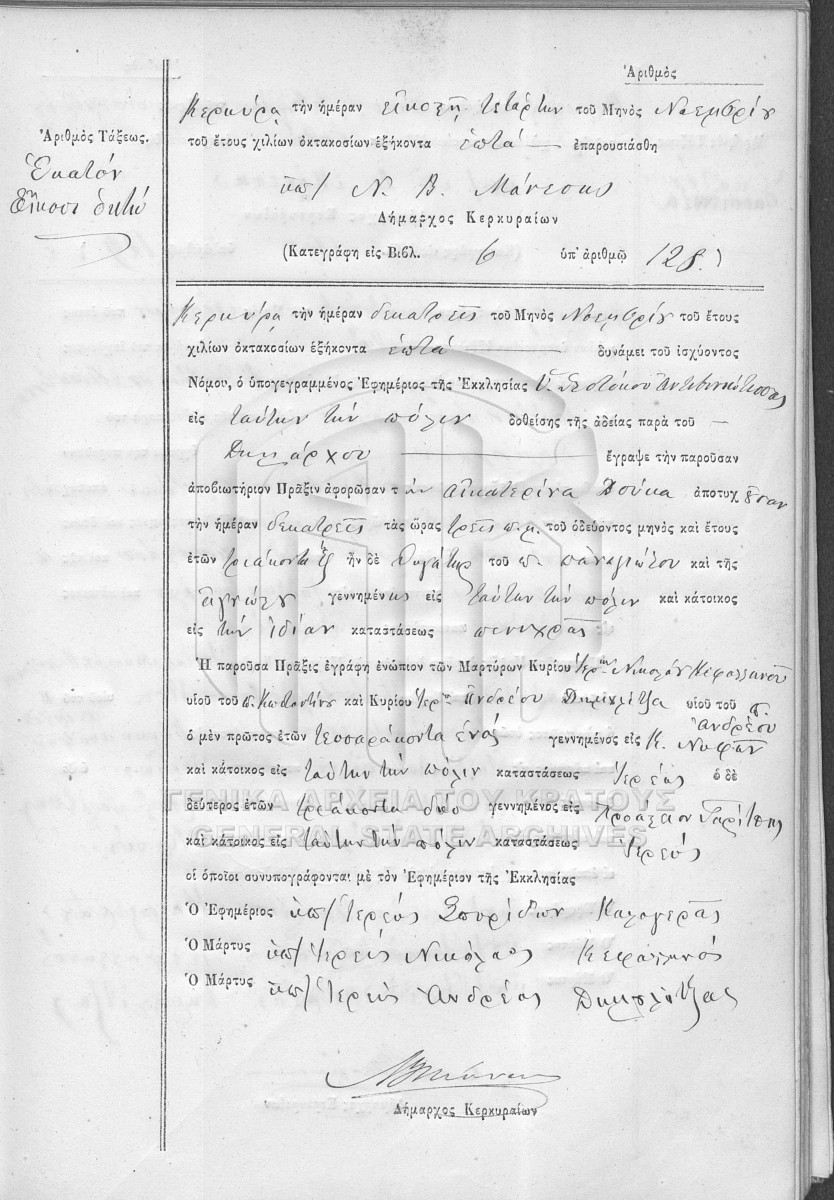 Ἀριθμὸς
Κερκύρᾳ τὴν ἡμέραν εἰκοστῇ τετάρτῃ τοῦ Μηνὸς Νοεμβρίου
Ἀριθμὸς Τάξεως.
τοῦ ἔτους χιλίων ὀκτακοσίων ἑξήκοντα ἑπτά ἐπαρουσιάσθη
Ἑκατόν
Εἴκοσι ὀκτώ
ὑπ/ Ν. Β. Μάνεσης
Δήμαρχος Κερκυραίων
(Κατεγράφη εἰς Βιβλ. 6 ὑπ' ἀριθμῷ 128.)
Κερκύρᾳ τὴν ἡμέραν δεκατρεῖς τοῦ Μηνὸς Νοεμβρίου τοῦ ἔτους
χιλίων ὀκτακοσίων ἑξήκοντα ἑπτά δυνάμει τοῦ ἰσχύοντος
Νόμου, ὁ ὑπογεγραμμένος Ἐφημέριος τῆς Ἐκκλησίας Ὑ. Θεοτόκου Ἀντιβουνιωτίσσας
εἰς ταύτην τὴν πόλιν δοθείσης τῆς ἀδείας παρὰ τοῦ
Δημάρχου ἔγραψε τὴν παροῦσαν
ἀποβιωτήριον Πρᾶξιν ἀφορῶσαν τὴν Αἰκατερίνα Δούκα ἀποτυχοῦσαν
τὴν ἡμέραν δεκατρεῖς τὰς ὥρας τρεῖς π.μ. τοῦ ὁδεύοντος μηνὸς καὶ ἔτους
ἐτῶν τριάκοντα ἕξ ἦν δὲ θυγάτηρ τοῦ π. Παναγιώτου καὶ τῆς
Ἀγνώστου γεννημένης εἰς ταύτην τὴν πόλιν καὶ κάτοικος
εἰς τὴν ἰδίαν καταστάσεως πενιχρᾶς
Ἡ παροῦσα Πρᾶξις ἐγράφη ἐνώπιον τῶν Μαρτύρων Κυρίου Ἱερ. Νικολάου Κεφαλληνοῦ
υἱοῦ τοῦ π. Κωσταντίνου καὶ Κυρίου Ἱερ. Ἀνδρέου Δημουλίτζα υἱοῦ τοῦ π.
Ἀνδρέου
ὁ μὲν πρῶτος ἐτῶν τεσσαράκοντα ἑνός γεννημένος εἰς Κ.
καὶ κάτοικος εἰς ταύτην τὴν πόλιν καταστάσεως Ἱερεύς ὁ δὲ
δεύτερος ἐτῶν τριάκοντα δύο γεννημένος εἰς Προάστιον Γαρίτσης
καὶ κάτοικος εἰς ταύτην τὴν πόλιν καταστάσεως Ἱερεύς
οἱ ὁποῖοι συνυπογράφονται μὲ τὸν Ἐφημέριον τῆς Ἐκκλησίας
Ὁ Ἐφημέριος ὑπ/ Ἱερεύς Σπυρίδων Καλογερᾶς
Ὁ Μάρτυς ὑπ/ Ἱερεύς Νικόλαος Κεφαλληνός
Ὁ Μάρτυς ὑπ/ Ἱερεύς Ἀνδρέας Δημουλίτζας
Δήμαρχος Κερκυραίων
ΓΕΝΙΚΑ ΑΡΧΕΙΑ ΤΟΥ ΚΡΑΤΟΥΣ
GENERAL STATE ARCHIVES